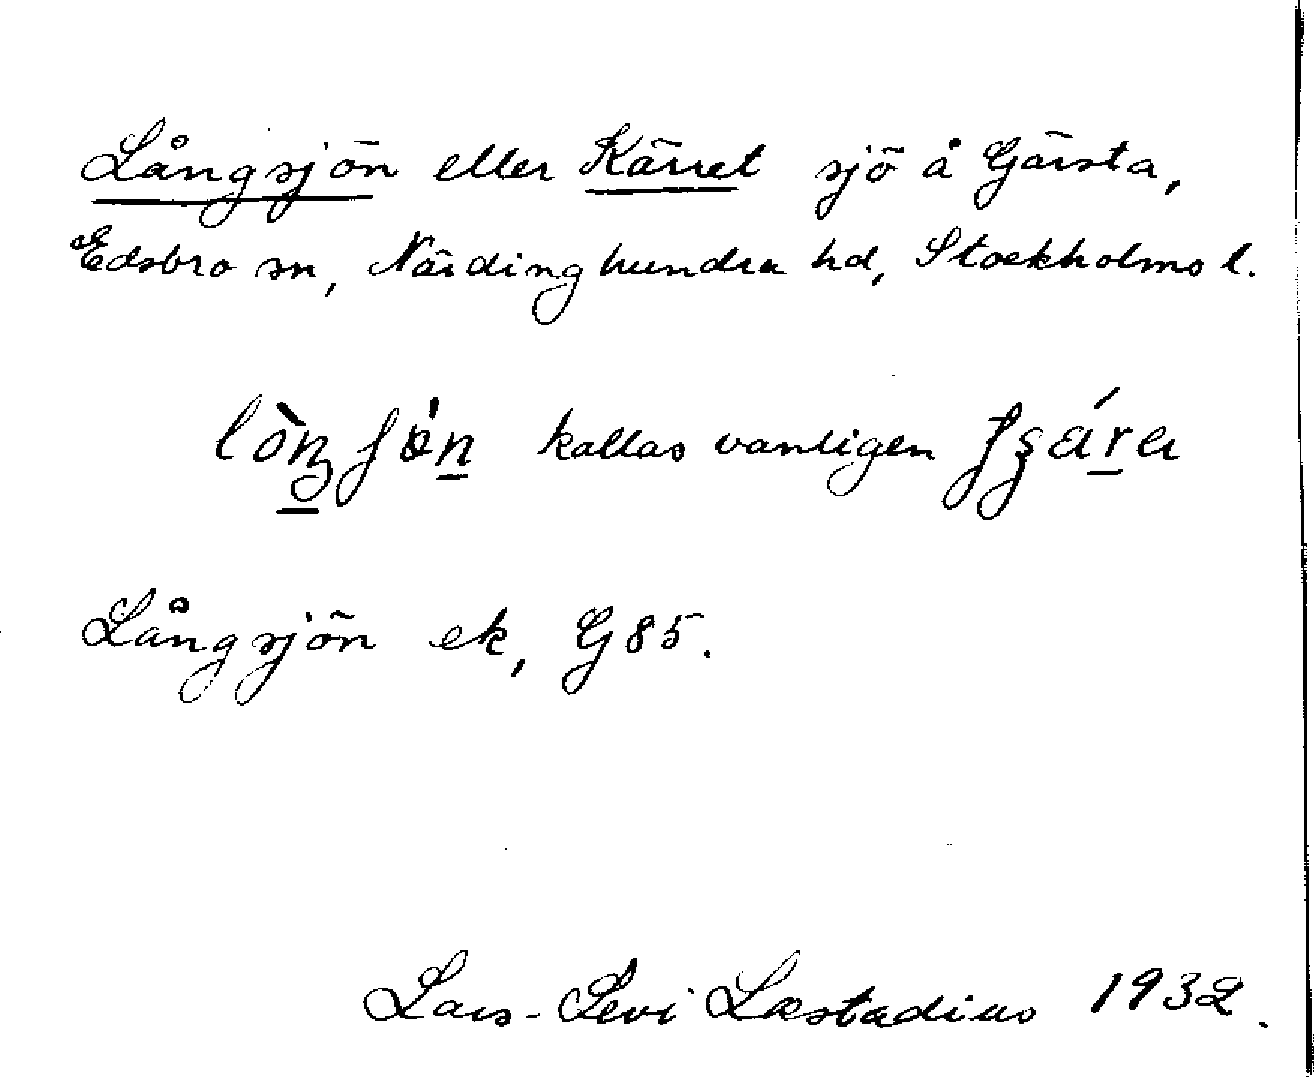 Långsjön eller Kärret sjö å Gärsta,
Edsbro sn, Närdinghundra hd, Stockholms l.
kallas vanligen
Långsjön ek, G 85.
Lars-Levi Læstadius 1932.